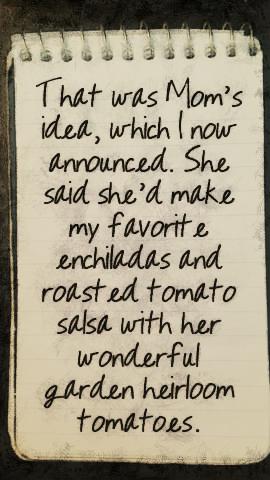 That was Mom's
idea, which I now
announced. She
said she'd make
my favorite
enchiladas and
roasted tomato
salsa with her
wonderful
garden heirloom
tomatoes.